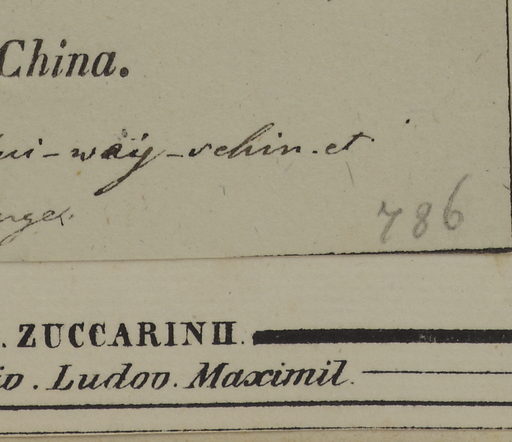 China.
-way-schin.et
786
. ZUCCARINII.
. Ludov. Maximil.